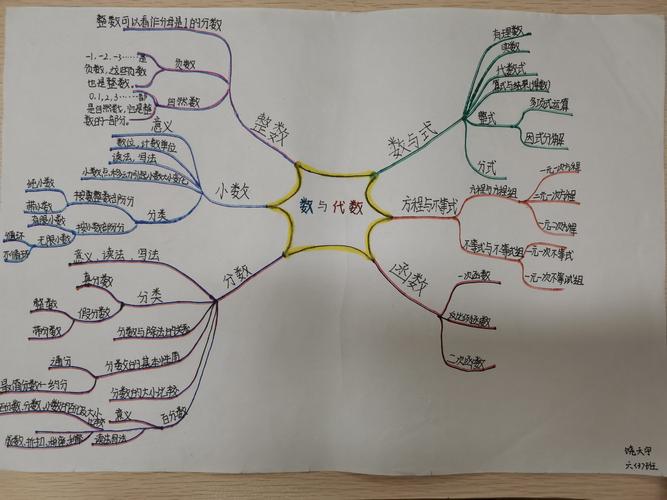 整数可以看作分母是1的分数
-1、-2、-3……是
负数,这些负数
也是整数。
负数
0、1、2、3……都
是自然数,它是整
数的一部分。
自然数
整数
意义
数位、计数单位
读法、写法
小数点移动引起小数大小变化
小数
纯小数
带小数
按整数部分
分类
有限小数
无限小数
循环
不循环
按小数部分
意义、读法、写法
真分数
分类
整数
带分数
假分数
分数与除法的关系
通分
最简分数←约分
分数的基本性质
分数的大小比较
意义
读法写法
百分数
分数
数与代数
数与式
有理数
实数
代数式
整式
多项式运算
因式分解
分式
方程与不等式
方程与方程组
一元一次方程
二元一次方程
不等式与不等式组
一元一次不等式
一元一次不等式组
函数
一次函数
反比例函数
二次函数